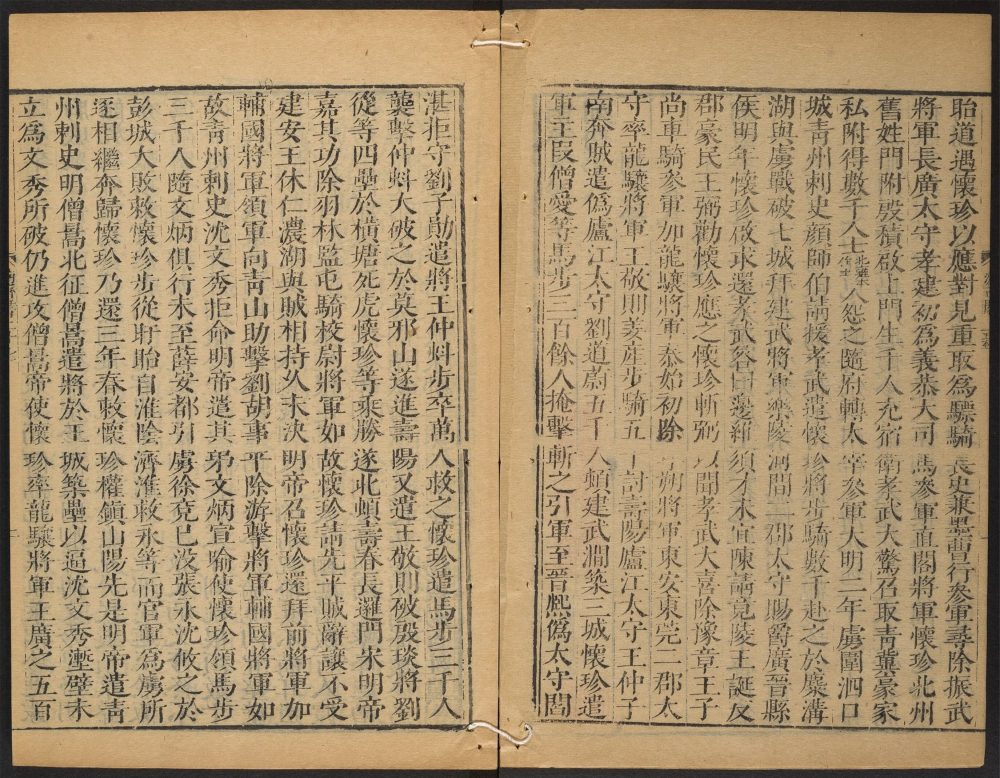 貽道遇懷珍以應對見重取爲驃騎長史兼墨曹行參軍尋除振武
將軍長廣太守孝建初爲義恭大司馬參軍直閤將軍懷珍北州
舊姓門附殷積啟上門生千人充宿衛孝武大驚召取靑冀豪家
私附得數千人士人怨之隨府轉太宰參軍大明二年虜圍泗口
城青州刺史顔師伯請援孝武遣懷珍將步騎數千赴之於麋溝
湖與虜戰破七城拜建武將軍樂陵河間二郡太守賜爵廣晉縣
侯明年懷珍啟求還孝武答曰邊維須才未宜陳請竟陵王誕反
郡豪民王弼勸懷珍應之懷珍斬弼以聞孝武大喜除豫章王子
尚車騎參軍加龍驤將軍泰始初除寧朔將軍東安東莞二郡太
守率龍驤將軍王敬則姜産步騎五千討壽陽廬江太守王仲子
南奔賊遣僞廬江太守劉道蔚五千人頓建武澗築三城懷珍遣
軍主段僧愛等馬步三百餘人掩擊斬之引軍至晉熙僞太守閻
湛拒守劉子勛遣將王仲虯步卒萬人救之懷珍遣馬步三千人
襲擊仲虯大破之於莫邪山遂進壽陽又遣王敬則破殷琰將劉
從等四壘於橫塘死虎懷珍等乘勝逐北頓壽春長邏門宋明帝
嘉其功除羽林監屯騎校尉將軍如故懷珍請先平賊辭讓不受
建安王休仁濃湖與賊相持久未決明帝召懷珍還拜前將軍加
輔國將軍領軍向青山助擊劉胡事平除游擊將軍輔國將軍如
故靑州刺史沈文秀拒命明帝遣其弟文炳宣喻使懷珍領馬步
三千人隨文炳俱行未至薛安都引虜徐兗已沒張永沈攸之於
彭城大敗敕懷珍步從盱眙自淮陰濟淮救永等而官軍爲虜所
逐相繼奔歸懷珍乃還三年春敕懷珍權鎭山陽先是明帝遣靑
州刺史明僧暠北征僧暠遣將於王城築壘以逼沈文秀壍壁未
立爲文秀所破仍進攻僧暠帝使懷珍率龍驤將軍王廣之五百